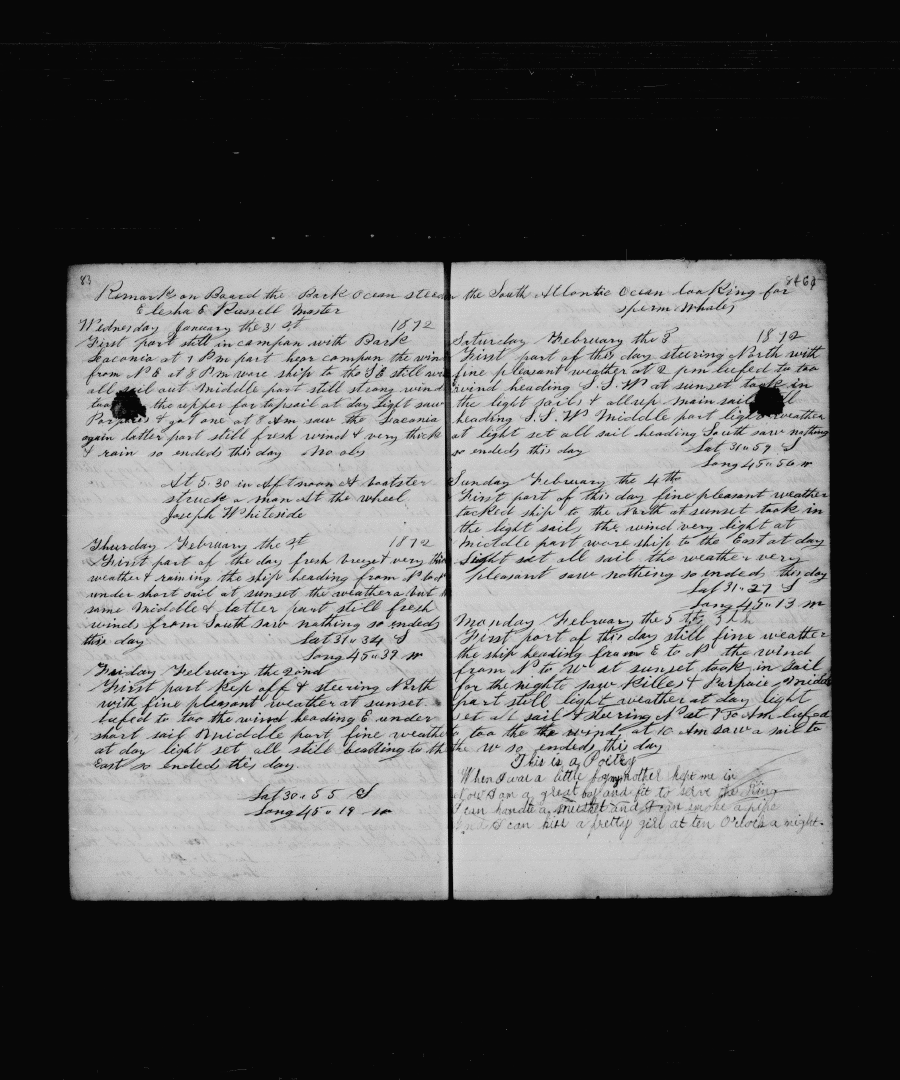 83
Remark on Board the Bark Ocean steed
Elesha E Russell Master
Wednesday January the 31 st 1872
First part still in compan with Bark
Laconia at 7 Pm part hear compan the wind
from N E at 8 P m ware ship to the S E still
all sail out Middle part still strong wind
took the upper for tapsail at day light saw
Porpoies & got one at 8 Am saw the Laconia
again latter part still fresh wind & very thick
& rain so ended this day No obs
At 5.30 in Aftnoon A boatster
struck a man At the wheel
Joseph Whiteside
Thursday February the 1st 1872
First part of the day fresh breyet very thick
weather & raining the ship heading from N to
under short sail at sunset the weather a but
same Middle & latter part still fresh
winds from South saw nothing so ended
this day Lat 31 " 34 S
Long 45 " 39 w
Friday February the 22nd
First part Kep off & steering North
with fine pleasant weather at sunset
lufed to too the wind heading E under
short sail Middle part fine weather
at day light set all still heatting to the
East so ended this day
Lat 30 " 55 S
Long 45 " 19 w
in the South Atlantic Ocean looking for
sperm Whales
Saturday February the 3 1872
First part of this day steering North with
fine pleasant weather at 2 pm lufed to too
wind heading S. S. W at sunset took in
the light sails & allso main sail still
heading S. S. W Middle part light weather
at light set all sail heading South saw nothing
so ended this day Lat 31 " 59 S
Long 45 " 56 w
Sunday February the 4 th
First part of this day fine pleasant weather
tacked ship to the North at sunset took in
the light sail, the wind very light at
middle part wore ship to the East at day
light set all sail the weather very
pleasant saw nothing so ended this day
Lat 31 " 27 S
Long 45 " 13 w
Monday February the 5 th 5 th
First part of this day still fine weather
the ship heading from E to N the wind
from N to W at sunset took in sail
for the nights saw Killes & Porpoie midde
part still light weather at day light
set all sail & steering N at 7 30 Am lufed
too the the wind at 10 Am saw a sail to
the W so ended this day
This is a Poetry
When I was a little boy my mother kept me in
Now I am a great boy and fit to serve the King
I can handle a musket and I can smoke a pipe
And I can kiss a pretty girl at ten Oclock a night